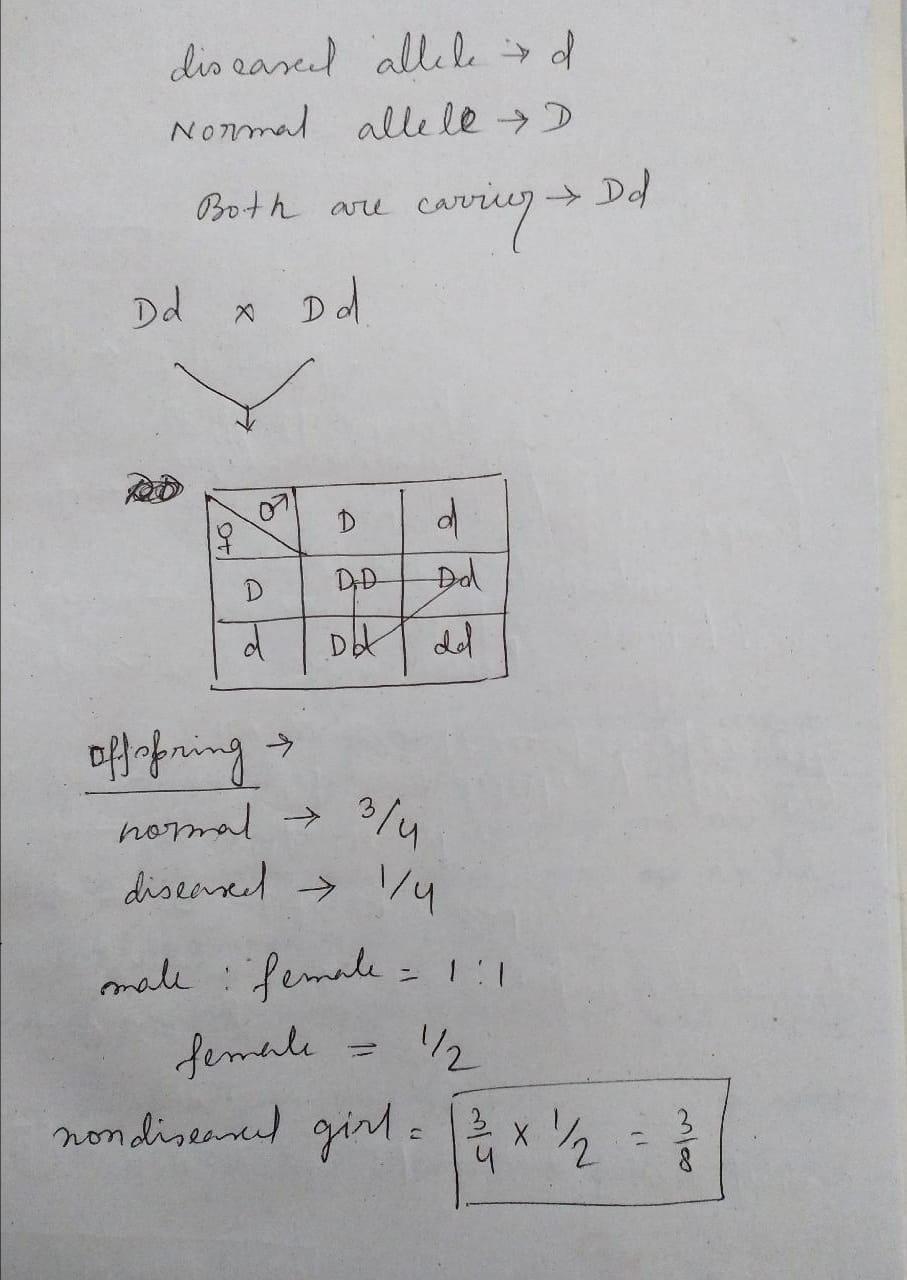 diseased allele → d
Normal allele → D
Both are carrier → Dd
Dd × Dd
♀ ♂ D d
D DD Dd
d Dd dd
Offspring →
normal → 3/4
diseased → 1/4
male : female = 1:1
female = 1/2
nondiseased girl = 3/4 × 1/2 = 3/8